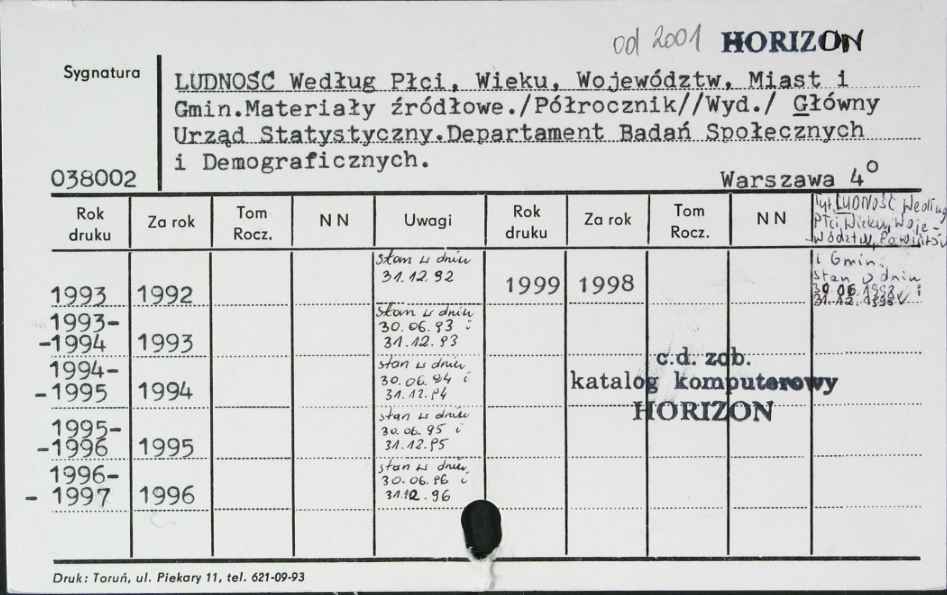 od 2001 HORIZON
Sygnatura
LUDNOŚĆ Według Płci, Wieku, Województw, Miast i
Gmin.Materiały źródłowe./Półrocznik//Wyd./ Główny
Urząd Statystyczny.Departament Badań Społecznych
i Demograficznych.
038002
Warszawa 4°
Rok druku Za rok Tom Rocz. N N Uwagi Rok druku Za rok Tom Rocz. N N
Tyt. LUDNOŚĆ Według
Płci, Wieku, Woje-
wództw, Powiatów
i Gmin.
stan w dniu
30.06.1998 i
31.12.1998
1993 1992 stan w dniu 31.12.92 1999 1998
1993-
-1994 1993 stan w dniu 30.06.93 i 31.12.93
1994-
-1995 1994 stan w dniu 30.06.94 i 31.12.94
1995-
-1996 1995 stan w dniu 30.06.95 i 31.12.95
1996-
-1997 1996 stan w dniu 30.06.96 i 31.12.96
c.d. zob.
katalog komputerowy
HORIZON
Druk: Toruń, ul. Piekary 11, tel. 621-09-93